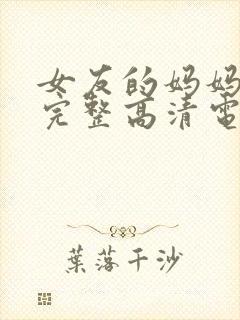 女友的妈妈
完整高清電
葉落千沙